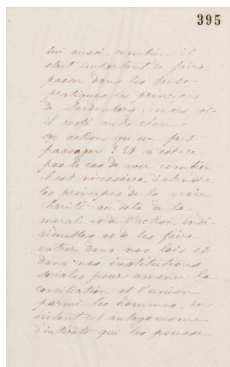 395
lui aussi, combien il
était important de faire
passer dans les faits
pratiques les principes
de
il resté
en action qu'un fait
passager ? Et n'est-ce
pas le cas de voir combien
il est nécessaire d'étendre
les principes de la vraie
charité au delà de la
morale et de l'action indi-
viduelles et de les faire
entrer dans nos lois et
dans nos institutions
sociales pour amener la
conciliation et l'union
parmi les hommes, en
évitant cet antagonisme
d'intérêts qui les pousse